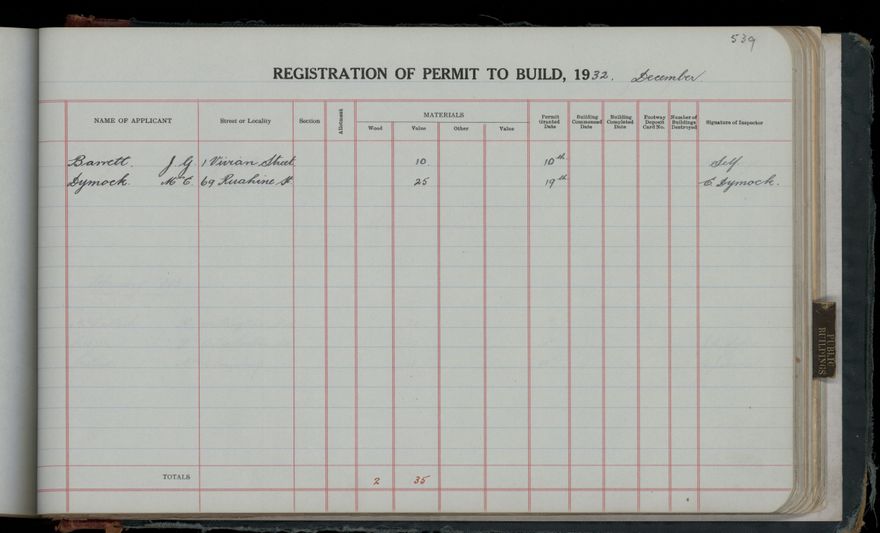 539
REGISTRATION OF PERMIT TO BUILD, 1932. December.
NAME OF APPLICANT Street or Locality Section Allotment MATERIALS Wood Value Other Value Permit Granted Date Building Commenced Date Building Completed Date Footway Deposit Card No. Number of Buildings Destroyed Signature of Inspector
Barrett. J G 1 Vivian Street 10 10th Self
Dymock. Mr C. 69 Ruahine St 25 19th C. Dymock.
TOTALS 2 35
PUBLIC BUILDINGS